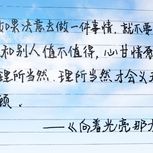 如果决意去做一件事情,就不要
和别人值不值得,心甘情愿
理所当然、理所当然才会义无
顾。
——《向着光亮那方